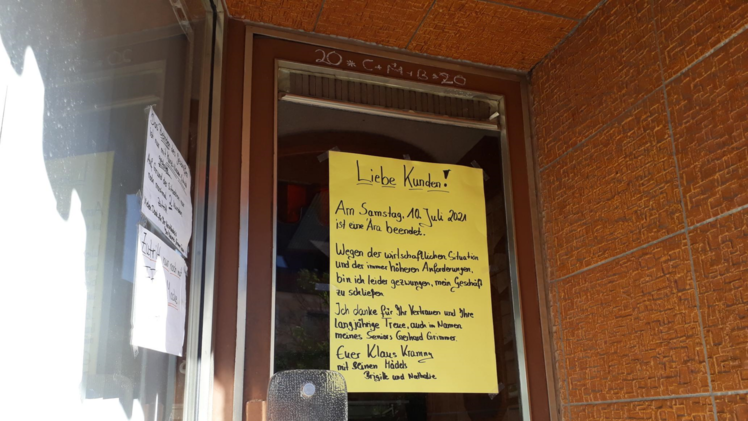 20 * C + M + B * 20
Liebe Kunden!
Am Samstag, 10. Juli 2021
ist eine Ära beendet.
Wegen der wirtschaftlichen Situation
und der immer höheren Anforderungen,
bin ich leider gezwungen, mein Geschäft
zu schließen
Ich danke für Ihr Vertrauen und Ihre
langjährige Treue, auch im Namen
meines Seniors Gerhard Grimmer.
Euer Klaus
mit seinen Mädels
Brigitte und Nathalie